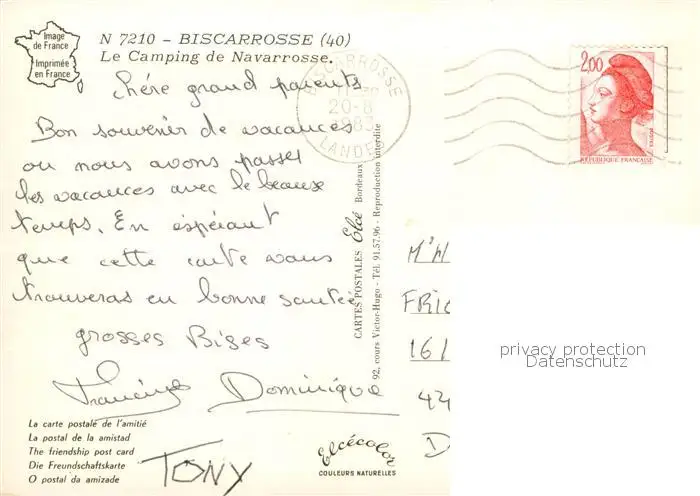 Image
de France
Imprimée
en France
N 7210 - BISCARROSSE (40)
Le Camping de Navarrosse.
Chére grand parents
Bon souvenir de vacances
ou nous avons passer
les vacances avec le beause
temps. En espérant
que cette carte vous
trouveras en bonne santée
grosses Bises
Dominique
TONY
La carte postale de l'amitié
La postal de la amistad
The friendship post card
Die Freundschaftskarte
O postal da amizade
Elcécolor
COULEURS NATURELLES
CARTES POSTALES Elcé Bordeaux
92, cours Victor-Hugo - Tél. 91.57.96 - Reproduction interdite
BISCARROSSE
20-8
1983
LANDES
2,00
POSTES
REPUBLIQUE FRANÇAISE
FRIC
161
privacy protection
Datenschutz